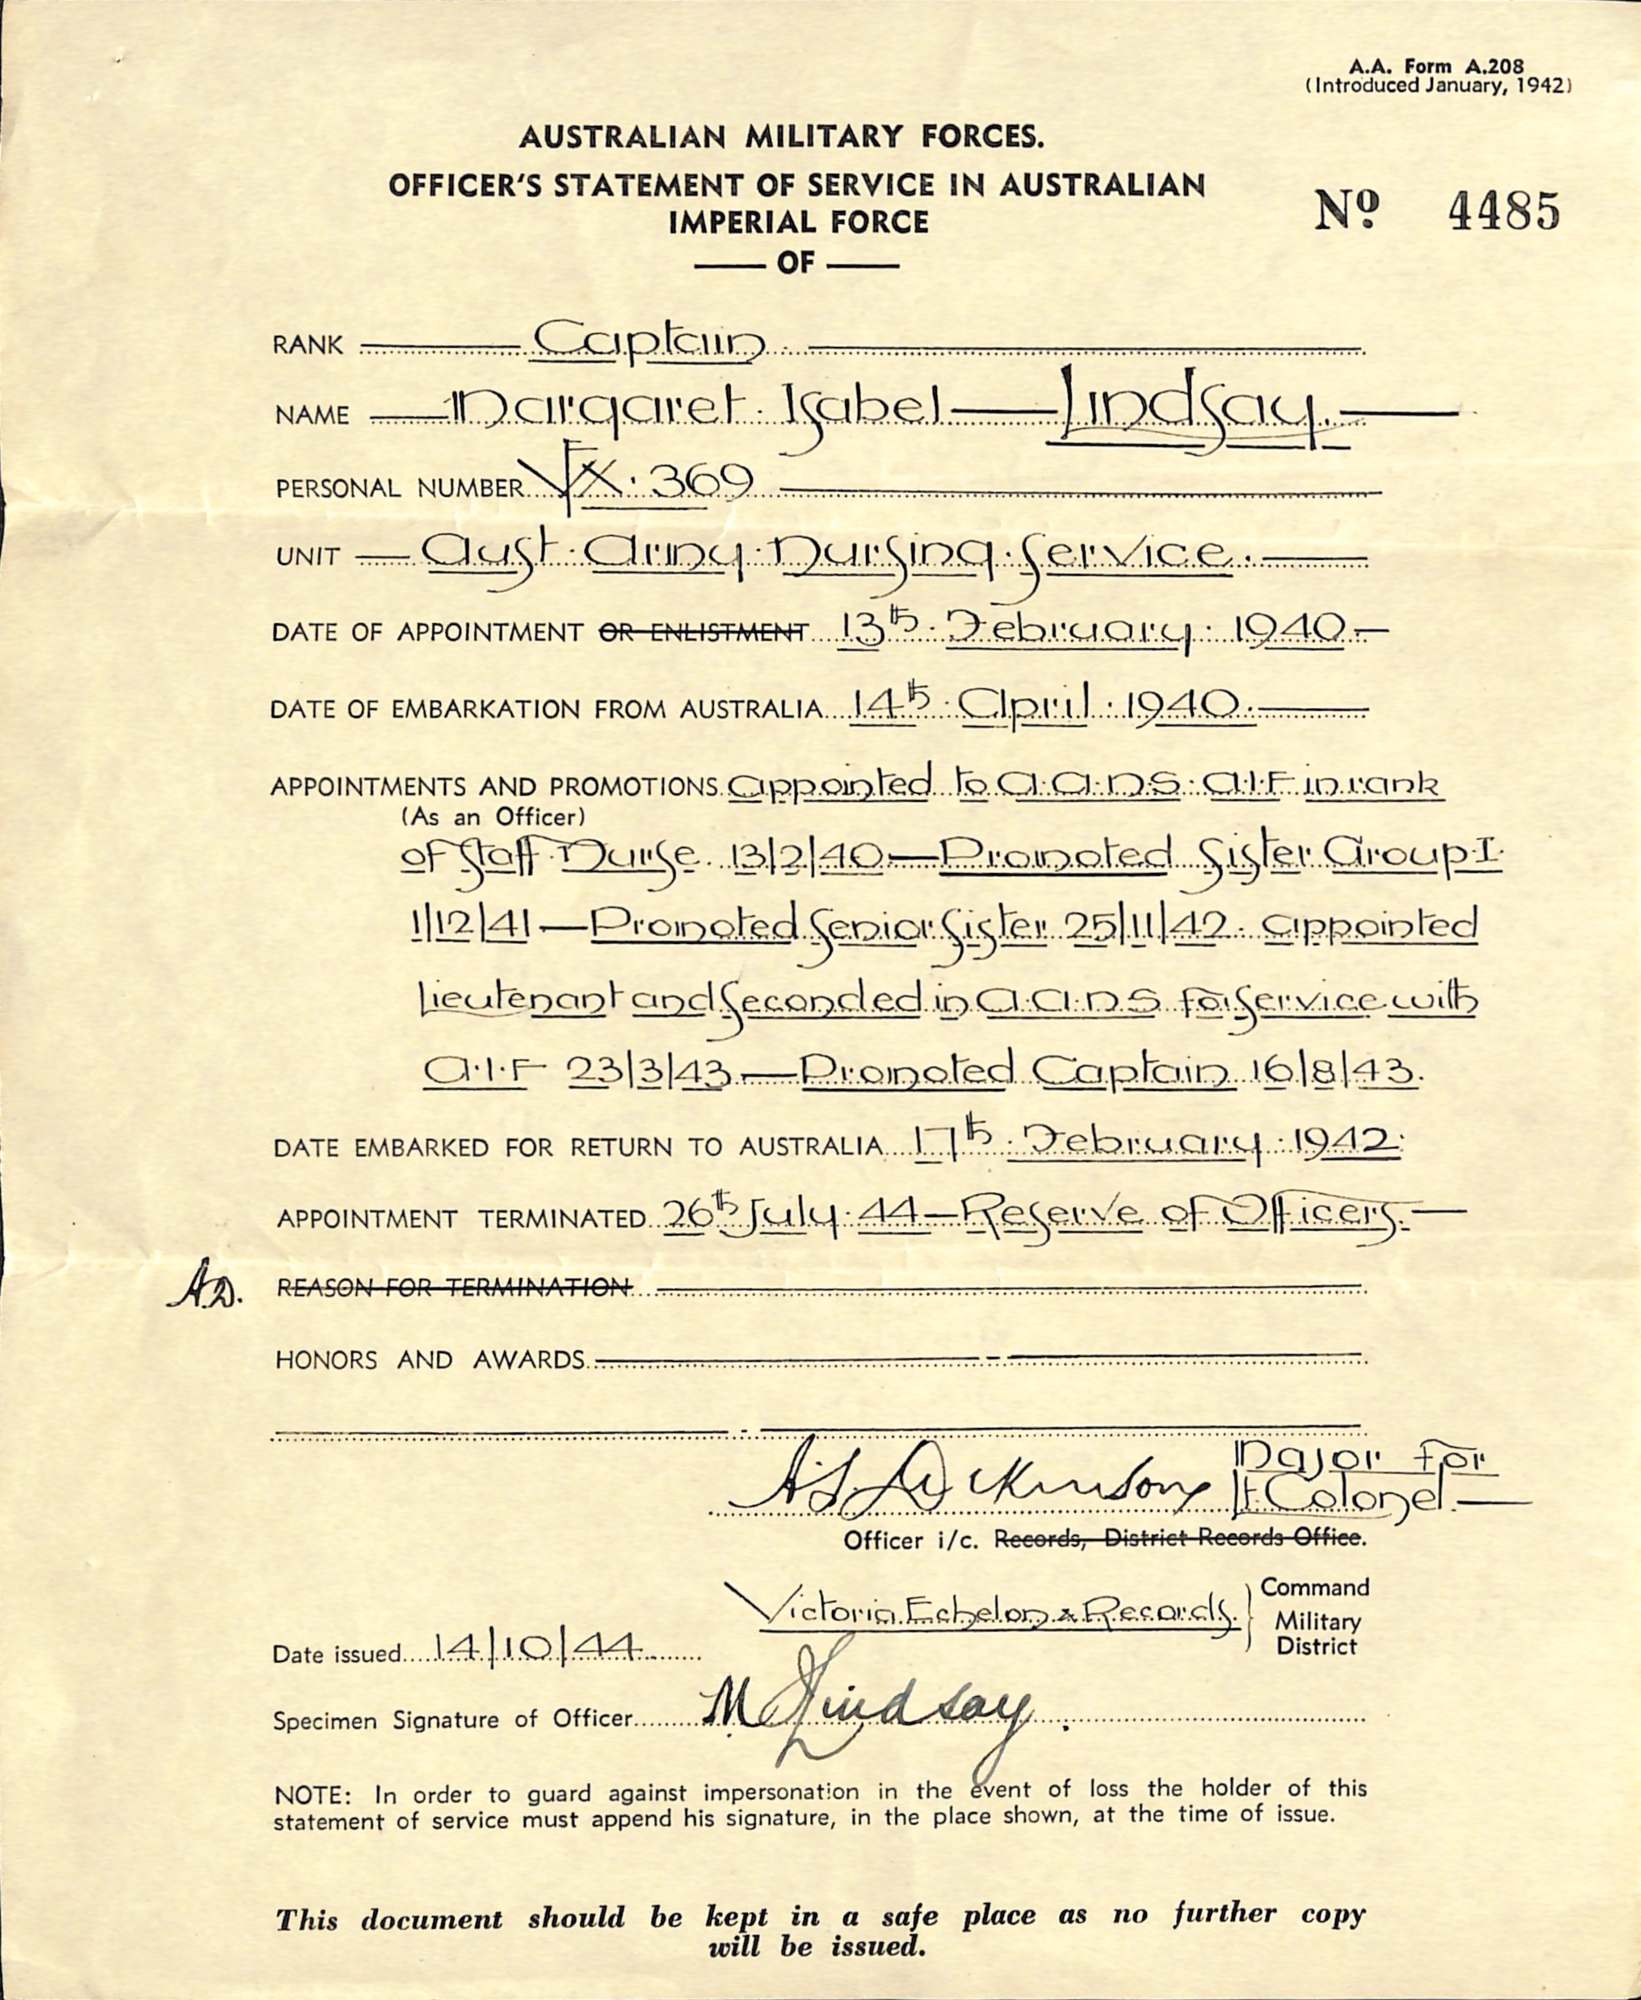 A.A. Form A.208
(Introduced January, 1942)
AUSTRALIAN MILITARY FORCES.
OFFICER'S STATEMENT OF SERVICE IN AUSTRALIAN
IMPERIAL FORCE
No 4485
— OF —
RANK Captain.
NAME Margaret Isabel Lindsay.
PERSONAL NUMBER VFX. 369
UNIT Aust. Army Nursing Service.
DATE OF APPOINTMENT OR ENLISTMENT 13th. February. 1940
DATE OF EMBARKATION FROM AUSTRALIA 14th. April. 1940.
APPOINTMENTS AND PROMOTIONS Appointed to A.A.N.S. A.I.F in rank
(As an Officer)
of Staff Nurse 13/2/40 — Promoted Sister Group I.
1/12/41 — Promoted Senior Sister 25/11/42. Appointed
Lieutenant and Seconded in A.A.N.S for Service with
A.I.F 23/3/43 — Promoted Captain 16/8/43.
DATE EMBARKED FOR RETURN TO AUSTRALIA 17th. February. 1942.
APPOINTMENT TERMINATED 26th July. 44 — Reserve of Officers.
A.D. REASON FOR TERMINATION
HONORS AND AWARDS
A.S. Dickinson Major for
Lt. Colonel.
Officer i/c. Records, District Records Office.
Victoria Echelon & Records. Command
Military
District
Date issued 14/10/44
Specimen Signature of Officer M Lindsay.
NOTE: In order to guard against impersonation in the event of loss the holder of this
statement of service must append his signature, in the place shown, at the time of issue.
This document should be kept in a safe place as no further copy
will be issued.